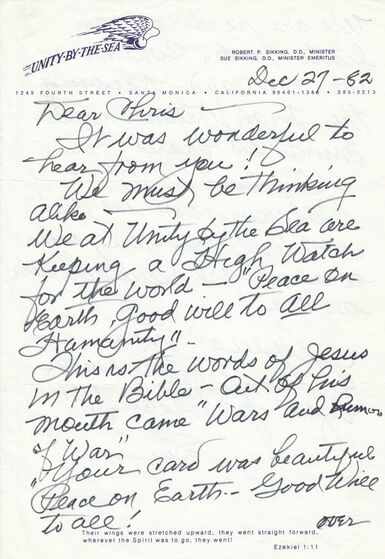 UNITY-BY-THE-SEA
ROBERT P. SIKKING, D.D., MINISTER
SUE SIKKING, D.D., MINISTER EMERITUS
Dec 27-82
1245 FOURTH STREET • SANTA MONICA • CALIFORNIA 90401-1386 • 393-0213
Dear Chris —
It was wonderful to
hear from you!
We must be thinking
alike —
We at Unity by the Sea are
Keeping a High Watch
for the World — "Peace on
Earth, Good will to All
Humanity" -
This is the words of Jesus
in the Bible - Out of his
mouth came "Wars and Rumors
of War"
Your card was beautiful
Peace on Earth - Good Will
to all!
over
Their wings were stretched upward, they went straight forward,
wherever the Spirit was to go, they went!
Ezekiel 1:11